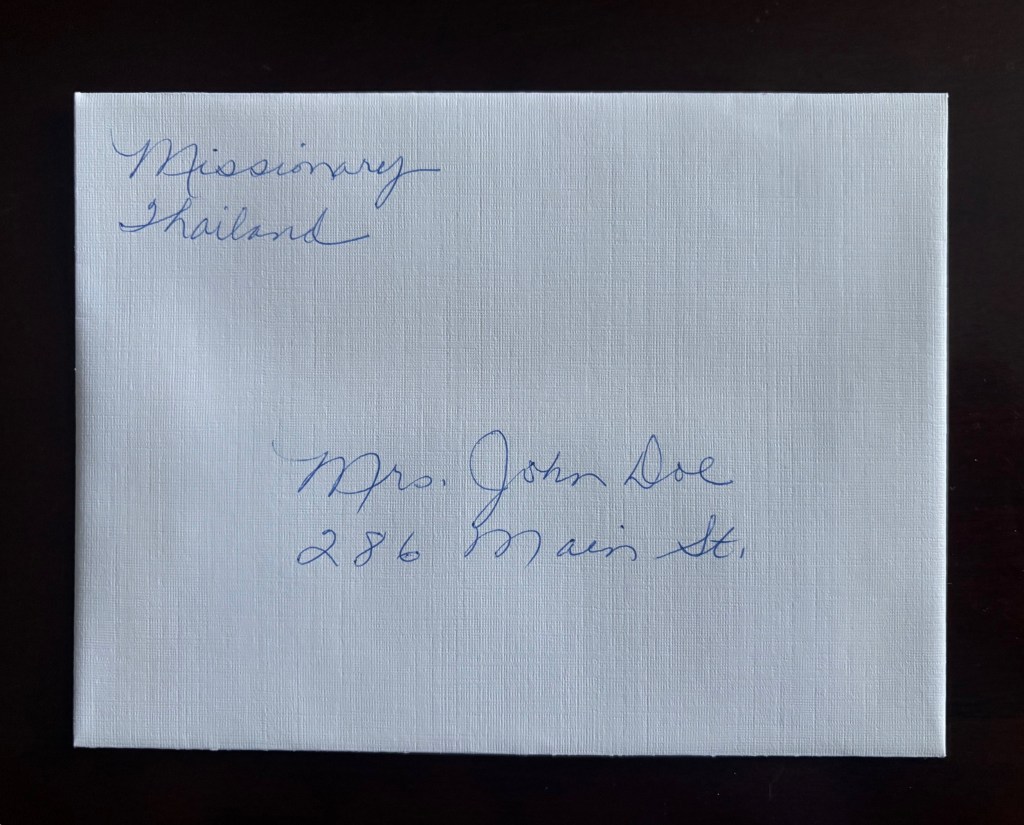 Missionary
Thailand
Mrs. John Doe
286 Main St.